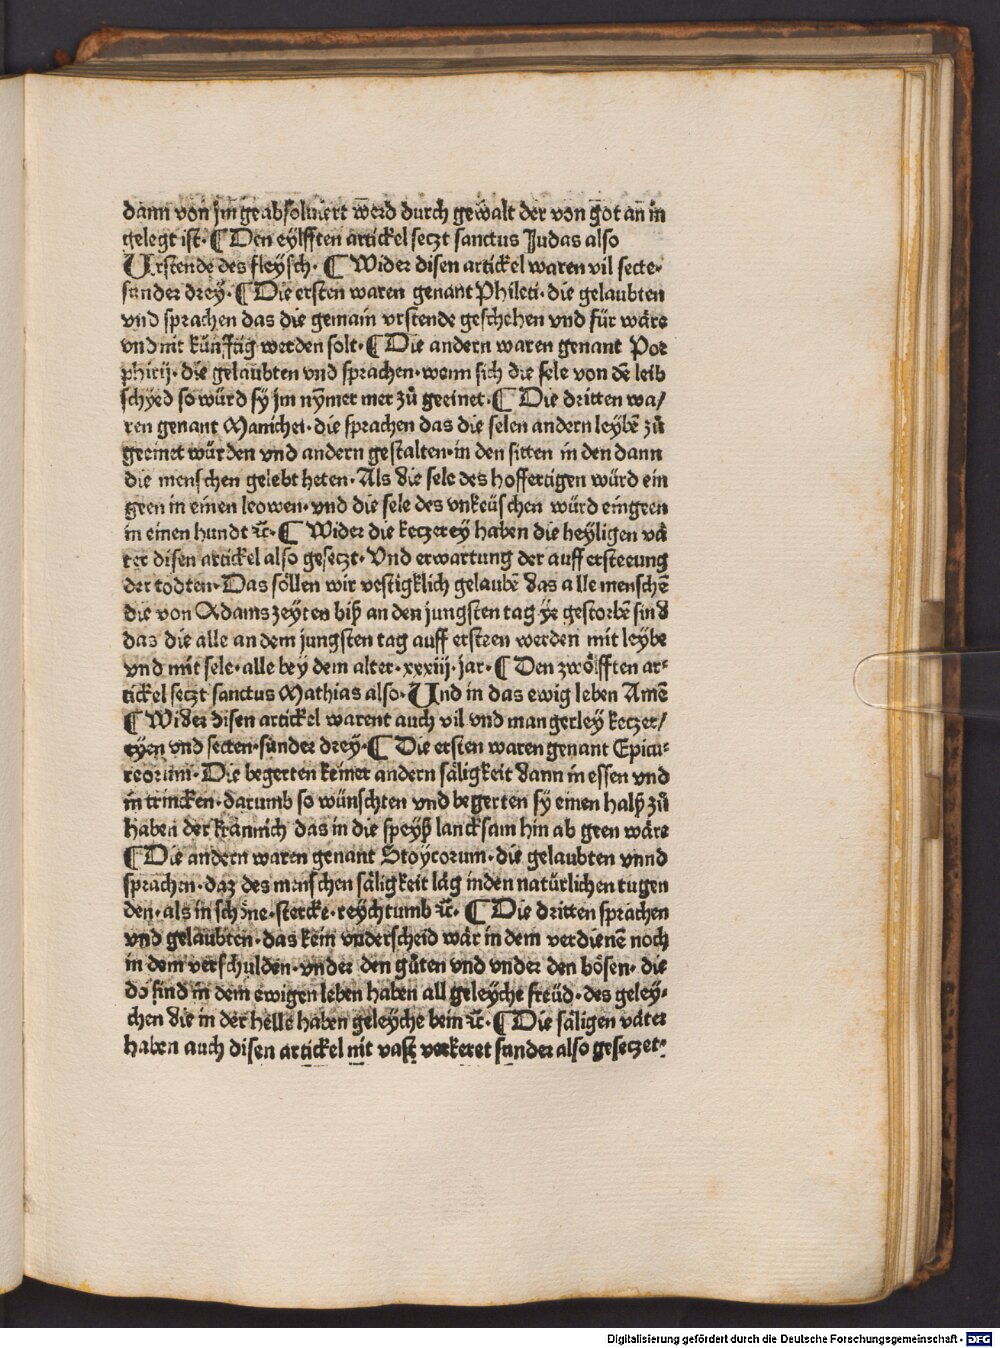 dann von jm geabsoluiert werd durch gewalt der von got an in
gelegt ist· ¶ Den eylfften artickel seczt sanctus Judas also
Urstende des fleysch· ¶ Wider disen artickel waren vil secte·
sunder drey· ¶ Die ersten waren genant Phileti· die gelaubten
vnd sprachen das die gemain vrstende geschehen vnd für wäre
vnd nit künfftig werden solt· ¶ Die andern waren genant Por
phirij· die gelaubten vnd sprachen· wenn sich die sele von dē leib
schyed so würd sy jm nȳmer mer zů geeinet· ¶ Die dritten wa/
ren genant Manichei· die sprachen das die selen andern leybē zů
geeinet würden vnd andern gestalten· in den sitten in den dann
die menschen gelebt heten· Als die sele des hoffertigen würd ein
geen in einen leowen· vnd die sele des vnkeüschen würd eingeen
in einen hundt ⁊c̄· ¶ Wider die keczerey haben die heyligen vä
ter disen artickel also geseczt· Vnd erwartung der aufferstecung
der todten· Das söllen wir vestigklich gelaubē das alle menschē
die von Adams zeyten biß an den jungsten tag ye gestorbē sind
das die alle an dem jungsten tag auff ersteen werden mit leybe
vnd mit sele· alle bey dem alter· xxxiij· jar· ¶ Den zwölfften ar-
tickel seczt sanctus Mathias also· Und in das ewig leben Amē
¶ Wider disen artickel warent auch vil vnd mangerley keczer/
eyen vnd secten· sunder drey· ¶ Die ersten waren genant Epicu-
reorum· Die begerten keiner andern säligkeit dann in essen vnd
in trincken· darumb so wünschten vnd begerten sy einen halß zů
haben der krannich das in die speyß lancksam hin ab geen wäre
¶ Die andern waren genant Stoycorum· die gelaubten vnnd
sprachen· daz des menschen säligkeit läg inden natürlichen tugen
den· als in schöne· stercke· reychtumb ⁊c̄· ¶ Die dritten sprachen
vnd gelaubten· das kein vnderscheid wär in dem verdienē noch
in dem verschulden· vnder den gůten vnd vnder den bösen· die
do sind in dem ewigen leben haben all geleyche freüd· des geley-
chen die in der helle haben geleyche bein ⁊c̄· ¶ Die säligen väter
haben auch disen artickel nit vast verkeret sunder also geseczet·
Digitalisierung gefördert durch die Deutsche Forschungsgemeinschaft - DFG